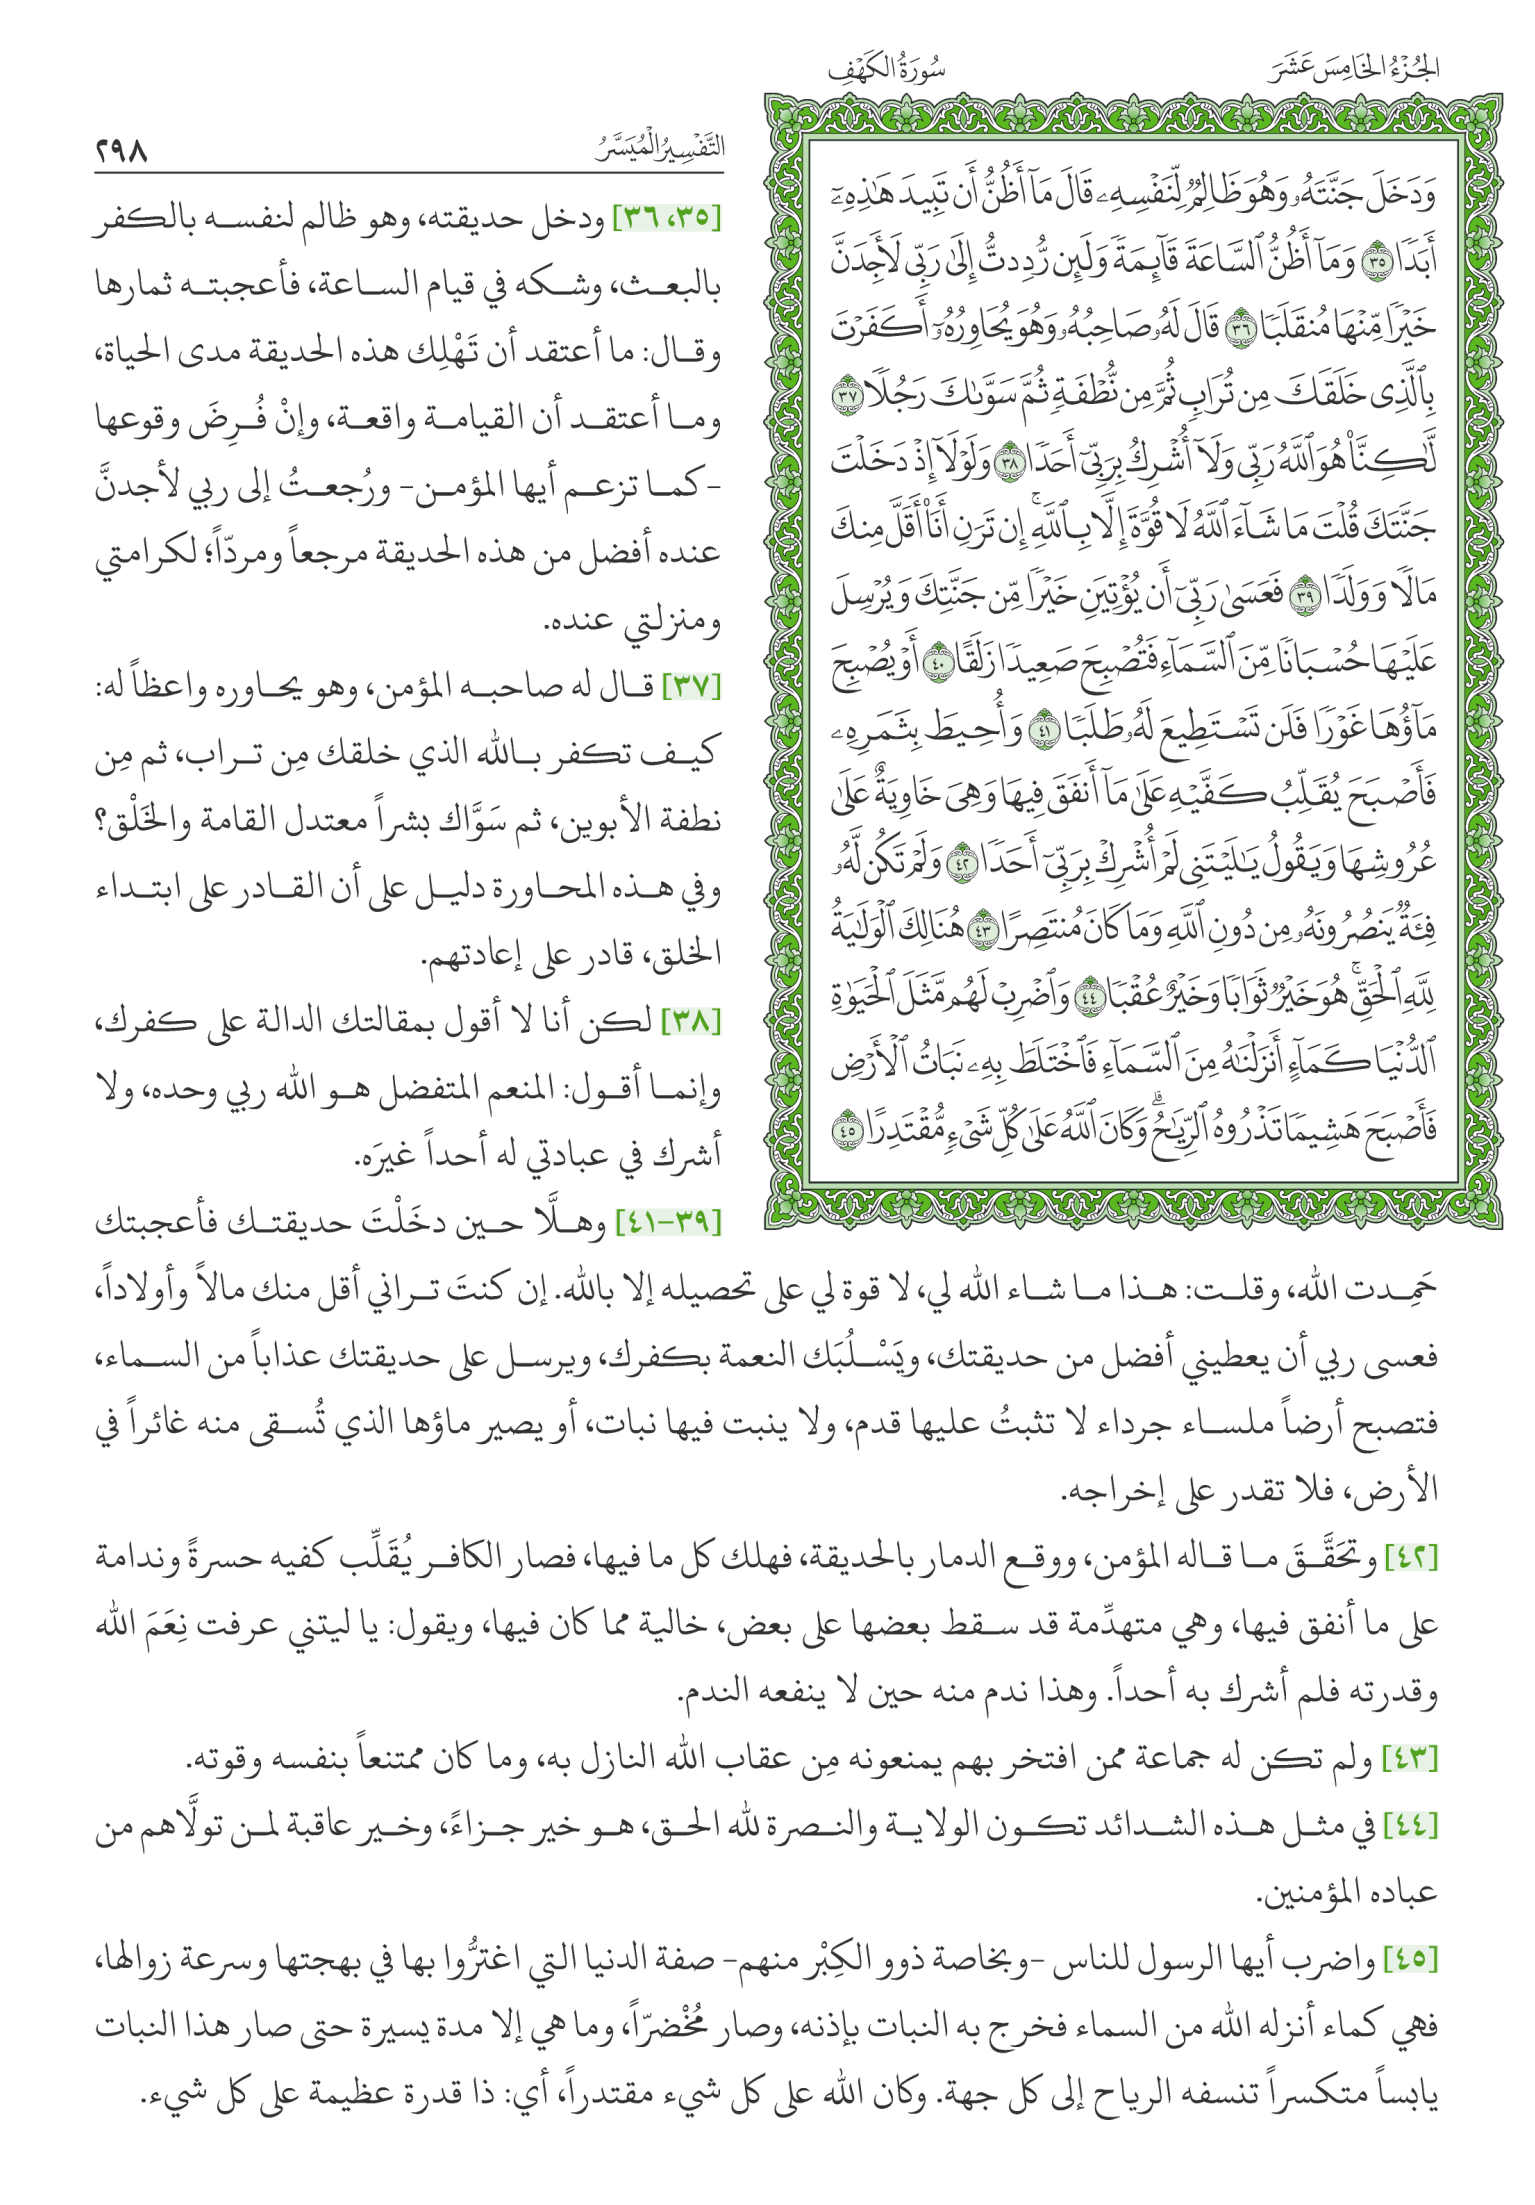 الجُزْءُ الخَامِسَ عَشَرَ
سُورَةُ الكَهْفِ
وَدَخَلَ جَنَّتَهُۥ وَهُوَ ظَالِمٌ لِّنَفْسِهِۦ قَالَ مَآ أَظُنُّ أَن تَبِيدَ هَٰذِهِۦٓ
أَبَدًا ٣٥ وَمَآ أَظُنُّ ٱلسَّاعَةَ قَآئِمَةً وَلَئِن رُّدِدتُّ إِلَىٰ رَبِّى لَأَجِدَنَّ
خَيْرًا مِّنْهَا مُنقَلَبًا ٣٦ قَالَ لَهُۥ صَاحِبُهُۥ وَهُوَ يُحَاوِرُهُۥٓ أَكَفَرْتَ
بِٱلَّذِى خَلَقَكَ مِن تُرَابٍ ثُمَّ مِن نُّطْفَةٍ ثُمَّ سَوَّىٰكَ رَجُلًا ٣٧
لَّٰكِنَّا۠ هُوَ ٱللَّهُ رَبِّى وَلَآ أُشْرِكُ بِرَبِّىٓ أَحَدًا ٣٨ وَلَوْلَآ إِذْ دَخَلْتَ
جَنَّتَكَ قُلْتَ مَا شَآءَ ٱللَّهُ لَا قُوَّةَ إِلَّا بِٱللَّهِۚ إِن تَرَنِ أَنَا۠ أَقَلَّ مِنكَ
مَالًا وَوَلَدًا ٣٩ فَعَسَىٰ رَبِّىٓ أَن يُؤْتِيَنِ خَيْرًا مِّن جَنَّتِكَ وَيُرْسِلَ
عَلَيْهَا حُسْبَانًا مِّنَ ٱلسَّمَآءِ فَتُصْبِحَ صَعِيدًا زَلَقًا ٤٠ أَوْ يُصْبِحَ
مَآؤُهَا غَوْرًا فَلَن تَسْتَطِيعَ لَهُۥ طَلَبًا ٤١ وَأُحِيطَ بِثَمَرِهِۦ
فَأَصْبَحَ يُقَلِّبُ كَفَّيْهِ عَلَىٰ مَآ أَنفَقَ فِيهَا وَهِىَ خَاوِيَةٌ عَلَىٰ
عُرُوشِهَا وَيَقُولُ يَٰلَيْتَنِى لَمْ أُشْرِكْ بِرَبِّىٓ أَحَدًا ٤٢ وَلَمْ تَكُن لَّهُۥ
فِئَةٌ يَنصُرُونَهُۥ مِن دُونِ ٱللَّهِ وَمَا كَانَ مُنتَصِرًا ٤٣ هُنَالِكَ ٱلْوَلَٰيَةُ
لِلَّهِ ٱلْحَقِّۚ هُوَ خَيْرٌ ثَوَابًا وَخَيْرٌ عُقْبًا ٤٤ وَٱضْرِبْ لَهُم مَّثَلَ ٱلْحَيَوٰةِ
ٱلدُّنْيَا كَمَآءٍ أَنزَلْنَٰهُ مِنَ ٱلسَّمَآءِ فَٱخْتَلَطَ بِهِۦ نَبَاتُ ٱلْأَرْضِ
فَأَصْبَحَ هَشِيمًا تَذْرُوهُ ٱلرِّيَٰحُۗ وَكَانَ ٱللَّهُ عَلَىٰ كُلِّ شَىْءٍ مُّقْتَدِرًا ٤٥
التَّفْسِيرُ الْمُيَسَّرُ
٢٩٨
[٣٥، ٣٦] ودخل حديقته، وهو ظالم لنفسه بالكفر
بالبعث، وشكه في قيام الساعة، فأعجبته ثمارها
وقال: ما أعتقد أن تَهْلِك هذه الحديقة مدى الحياة،
وما أعتقد أن القيامة واقعة، وإنْ فُرِضَ وقوعها
-كما تزعم أيها المؤمن- ورُجعتُ إلى ربي لأجدنَّ
عنده أفضل من هذه الحديقة مرجعاً ومردّاً؛ لكرامتي
ومنزلتي عنده.
[٣٧] قال له صاحبه المؤمن، وهو يحاوره واعظاً له:
كيف تكفر بالله الذي خلقك مِن تراب، ثم مِن
نطفة الأبوين، ثم سَوَّاك بشراً معتدل القامة والخَلْق؟
وفي هذه المحاورة دليل على أن القادر على ابتداء
الخلق، قادر على إعادتهم.
[٣٨] لكن أنا لا أقول بمقالتك الدالة على كفرك،
وإنما أقول: المنعم المتفضل هو الله ربي وحده، ولا
أشرك في عبادتي له أحداً غيرَه.
[٣٩-٤١] وهلَّا حين دخَلْتَ حديقتك فأعجبتك
حَمِدت الله، وقلت: هذا ما شاء الله لي، لا قوة لي على تحصيله إلا بالله. إن كنتَ تراني أقل منك مالاً وأولاداً،
فعسى ربي أن يعطيني أفضل من حديقتك، ويَسْلُبَك النعمة بكفرك، ويرسل على حديقتك عذاباً من السماء،
فتصبح أرضاً ملساء جرداء لا تثبتُ عليها قدم، ولا ينبت فيها نبات، أو يصير ماؤها الذي تُسقى منه غائراً في
الأرض، فلا تقدر على إخراجه.
[٤٢] وتحَقَّقَ ما قاله المؤمن، ووقع الدمار بالحديقة، فهلك كل ما فيها، فصار الكافر يُقَلِّب كفيه حسرةً وندامة
على ما أنفق فيها، وهي متهدِّمة قد سقط بعضها على بعض، خالية مما كان فيها، ويقول: يا ليتني عرفت نِعَمَ الله
وقدرته فلم أشرك به أحداً. وهذا ندم منه حين لا ينفعه الندم.
[٤٣] ولم تكن له جماعة ممن افتخر بهم يمنعونه مِن عقاب الله النازل به، وما كان ممتنعاً بنفسه وقوته.
[٤٤] في مثل هذه الشدائد تكون الولاية والنصرة لله الحق، هو خير جزاءً، وخير عاقبة لمن تولَّاهم من
عباده المؤمنين.
[٤٥] واضرب أيها الرسول للناس -وبخاصة ذوو الكِبْر منهم- صفة الدنيا التي اغترُّوا بها في بهجتها وسرعة زوالها،
فهي كماء أنزله الله من السماء فخرج به النبات بإذنه، وصار مُخْضرّاً، وما هي إلا مدة يسيرة حتى صار هذا النبات
يابساً متكسراً تنسفه الرياح إلى كل جهة. وكان الله على كل شيء مقتدراً، أي: ذا قدرة عظيمة على كل شيء.